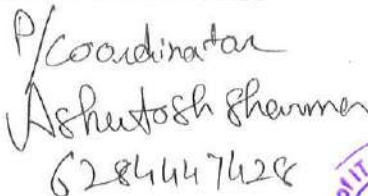 P/Coordinator
Ashutosh Sharma
6284447428